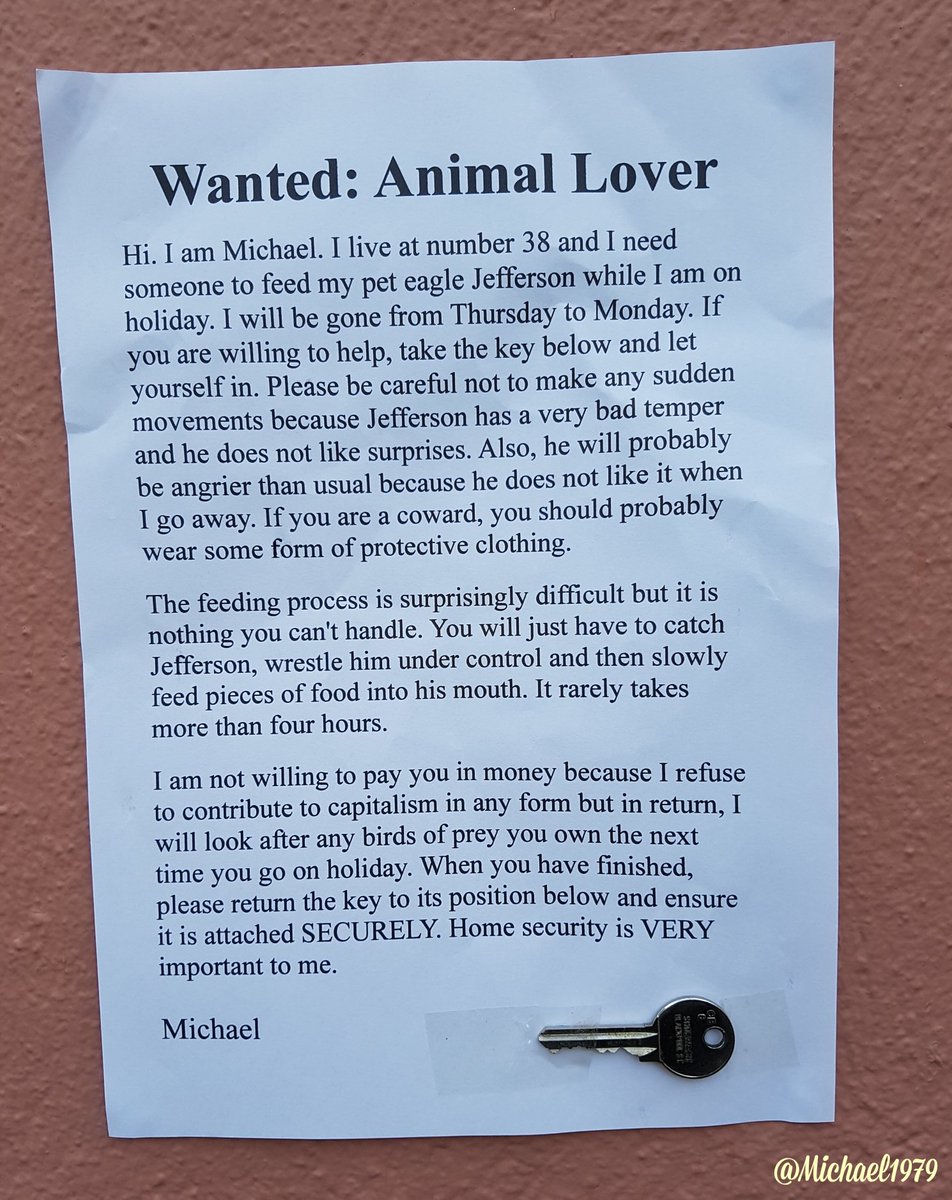 Wanted: Animal Lover
Hi. I am Michael. I live at number 38 and I need
someone to feed my pet eagle Jefferson while I am on
holiday. I will be gone from Thursday to Monday. If
you are willing to help, take the key below and let
yourself in. Please be careful not to make any sudden
movements because Jefferson has a very bad temper
and he does not like surprises. Also, he will probably
be angrier than usual because he does not like it when
I go away. If you are a coward, you should probably
wear some form of protective clothing.
The feeding process is surprisingly difficult but it is
nothing you can't handle. You will just have to catch
Jefferson, wrestle him under control and then slowly
feed pieces of food into his mouth. It rarely takes
more than four hours.
I am not willing to pay you in money because I refuse
to contribute to capitalism in any form but in return, I
will look after any birds of prey you own the next
time you go on holiday. When you have finished,
please return the key to its position below and ensure
it is attached SECURELY. Home security is VERY
important to me.
Michael
@Michael1979